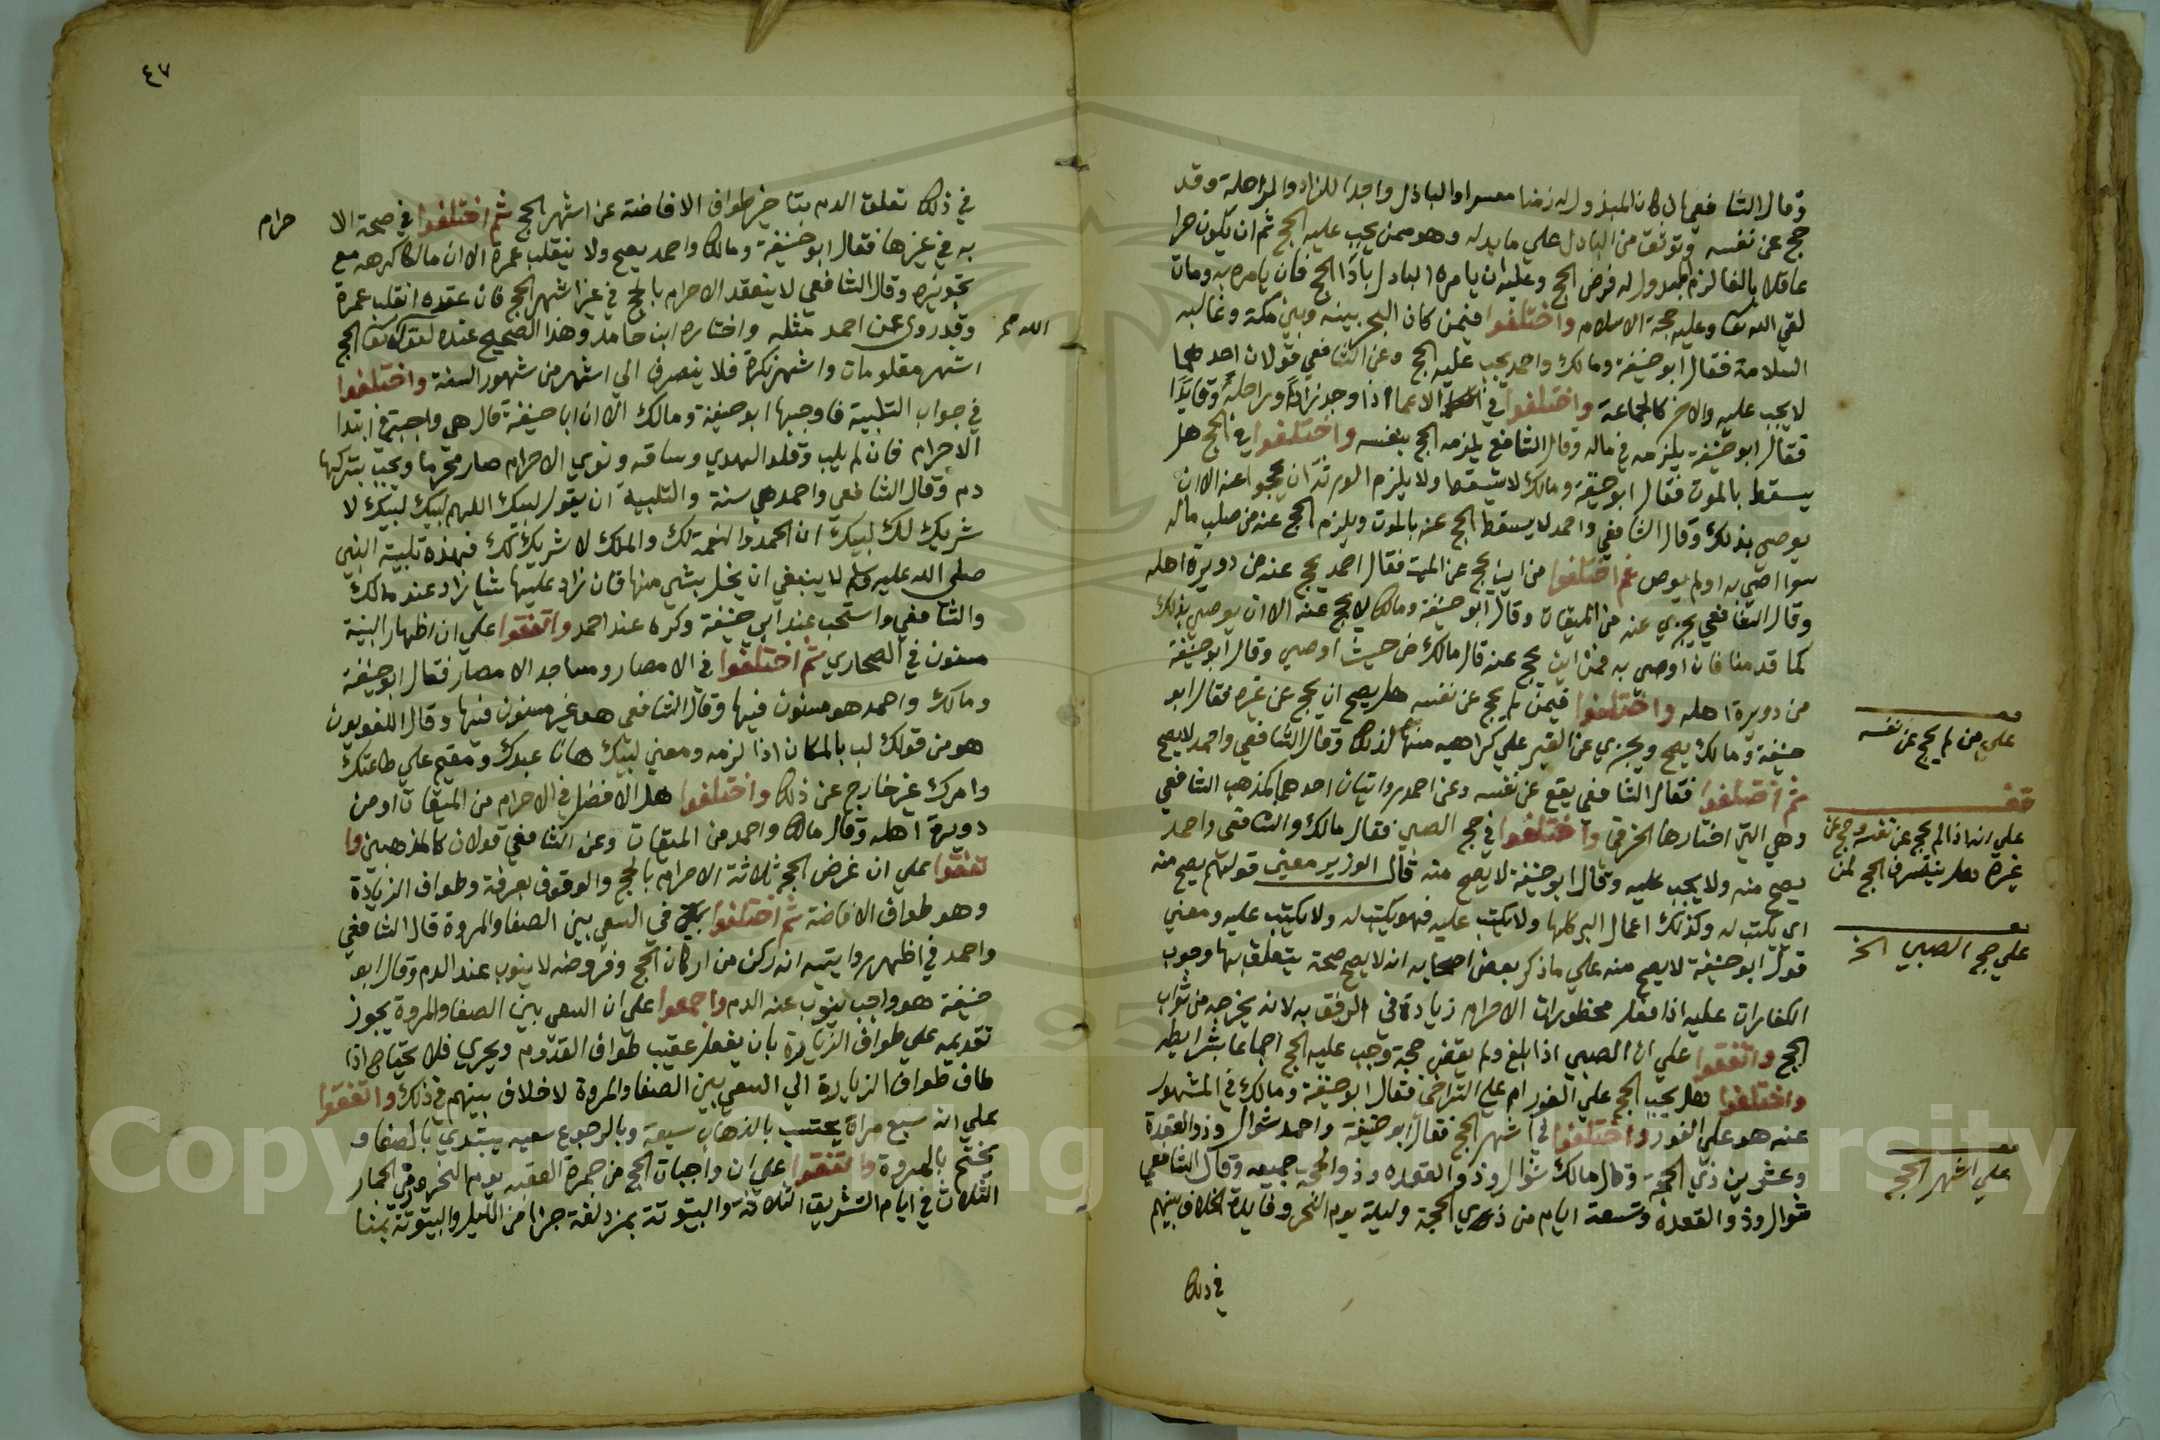 وقال الشافعي ان كان المبذول له زمنا معسرا والباذل واجدا للزاد والراحلة وقد
حج عن نفسه وتوثق من الباذل على ما بذله وهو ممن يجب عليه الحج ثم ان يكون حرا
عاقلا بالغا لزم المبذول له فرض الحج وعليه ان يامره الباذل باداء الحج فان يامره به ومات
لقي الله تعا وعليه حجة الاسلام واختلفوا فيمن كان البحر بينه وبين مكة وغالبه
السلامة فقال ابو حنيفة ومالك واحمد يجب عليه الحج وعن الشافعي قولان احدهما
لا يجب عليه والاخر كالجماعة واختلفوا في الاعما اذا وجد زادا وراحلة وقايدا
فقال ابو حنيفة يلزمه في ماله وقال الشافعي يلزمه الحج بنفسه واختلفوا في الحج هل
يسقط بالموت فقال ابو حنيفة ومالك لا يسقط ولا يلزم الورثة ان يحجوا عنه الا ان
يوصي بذلك وقال الشافعي واحمد لا يسقط الحج عنه بالموت ويلزم الحج عنه من صلب ماله
سوا اوصي به اولم يوص ثم اختلفوا من اين يحج عن الميت فقال احمد يحج عنه من دويرة اهله
وقال الشافعي يجزي عنه من الميقات وقال ابو حنيفة ومالك لا يحج عنه الا ان يوصي بذلك
كما قدمنا فان اوصى به فمن اين يحج عنه قال مالك من حيث اوصي وقال ابو حنيفة
من دويرة اهله واختلفوا فيمن لم يحج عن نفسه هل يصح ان يحج عن غيره فقال ابو
حنيفة ومالك يصح ويجزي عن الغير علي كراهيه منهما لذلك وقال الشافعي واحمد لا يصح
ثم اختلفوا فقال الشافعي يقع عن نفسه وعن احمد روايتان احدهما كمذهب الشافعي
وهي التي اختارها الخرقي واختلفوا في حج الصبي فقال مالك والشافعي واحمد
يصح منه ولا يجب عليه وقال ابو حنيفة لا يصح منه قال الوزير معني قولهم يصح منه
اي يكتب له وكذلك اعمال البر كلها ولا يكتب عليه فهو يكتب له ولا يكتب عليه ومعني
قول ابو حنيفة لا يصح منه علي ما ذكر بعض اصحابه انه لا يصح صحة يتعلق بها وجوب
الكفارات عليه اذا فعل محظورات الاحرام زيادة في الرفق به لا انه يخرجه من ثواب
الحج واتفقوا علي ان الصبي اذا بلغ ولم يقض حجة وجب عليه الحج اجماعا بشرايطه
واختلفوا هل يجب الحج علي الفور ام علي التراخي فقال ابو حنيفة ومالك في المشهور
عنه هو على الفور واختلفوا في اشهر الحج فقال ابو حنيفة واحمد شوال وذو القعدة
وعشر من ذي الحجة وقال مالك شوال وذو القعده وذو الحجه جميعه وقال الشافعي
شوال وذو القعدة وتسعة ايام من ذي الحجة وليلة يوم النحر وفايدة الخلاف بينهم
في ذلك
علي من لم يحج عن نفسه
قف
علي انه اذا لم يحج عن نفسه وحج عن
غيره هل ينصرف الحج لمن
علي حج الصبي الخ
علي اشهر الحج
٤٧
في ذلك تعلق الدم بتاخير طواف الافاضة عن اشهر الحج ثم اختلفوا في صحة الا
حرام
به في غيرها فقال ابو حنيفة ومالك واحمد يصح ولا ينقلب عمرة الا ان مالكا كرهه مع
تجويزه وقال الشافعي لا ينعقد الاحرام بالحج في غير اشهر الحج فان عقده انقلب عمرة
وقد روي عن احمد مثله واختاره ابن حامد وهذا الصحيح عنده لقوله تعا الحج
اشهر معلومات واشهر نكرة فلا ينصرف الي اشهر من شهور السنة واختلفوا
في جواب التلبية فاوجبها ابو حنيفة ومالك الا ان ابا حنيفة قال هي واجبة في ابتدا
الاحرام فان لم يلب وقلد الهدي وساقه ونوي الاحرام صار محرما ويجب بتركها
دم وقال الشافعي واحمد هي سنة والتلبية ان يقول لبيك اللهم لبيك لبيك لا
شريك لك لبيك ان الحمد والنعمة لك والملك لا شريك لك فهذه تلبية النبي
صلى الله عليه وسلم لا ينبغي ان يخل بشي منها فان زاد عليها شيا زاد عند مالك
والشافعي واستحب عند ابي حنيفة وكره عند احمد واتفقوا علي ان اظهار البنية
مسنون في الصحاري ثم اختلفوا في الامصار ومساجد الامصار فقال ابو حنيفة
ومالك واحمد هو مسنون فيها وقال الشافعي هو غير مسنون فيها وقال اللغويون
هو من قولك لب بالمكان اذا لزمه ومعني لبيك هانا عبدك ومقيم علي طاعتك
وامرك غير خارج عن ذلك واختلفوا هل الافضل في الاحرام من الميقات او من
دويرة اهله وقال مالك واحمد من الميقات وعن الشافعي قولان كالمذهبين وا
تفقوا علي ان غرض الحج ثلاثة الاحرام بالحج والوقوف بعرفة وطواف الزيادة
وهو طواف الافاضة ثم اختلفوا في السعي بين الصفا والمروة قال الشافعي
واحمد في اظهر روايتيه انه ركن من اركان الحج وفروضه لا ينوب عند الدم وقال ابو
حنيفة هو واجب ينوب عنه الدم واجمعوا علي ان السعي بين الصفا والمروة يجوز
تقديمه علي طواف الزيارة بان يفعل عقيب طواف القدوم ويجري فلا يحتاج اذا
طاف طواف الزيارة الي السعي بين الصفا والمروة لا خلاف بينهم في ذلك واتفقوا
علي انه سبع مرات يحتسب بالذهاب سيعة وبالرجوع سعيه يبتدي بالصفا و
يختم بالمروة واتفقوا علي ان واجبات الحج من جمرة العقبه يوم النحر ورمي الجمار
الثلاث في ايام التشريق الثلاثة والبيتوتة بمزدلفة جزا من الليل والبيتوتة بمنا
Copyright © King Saud University
1957